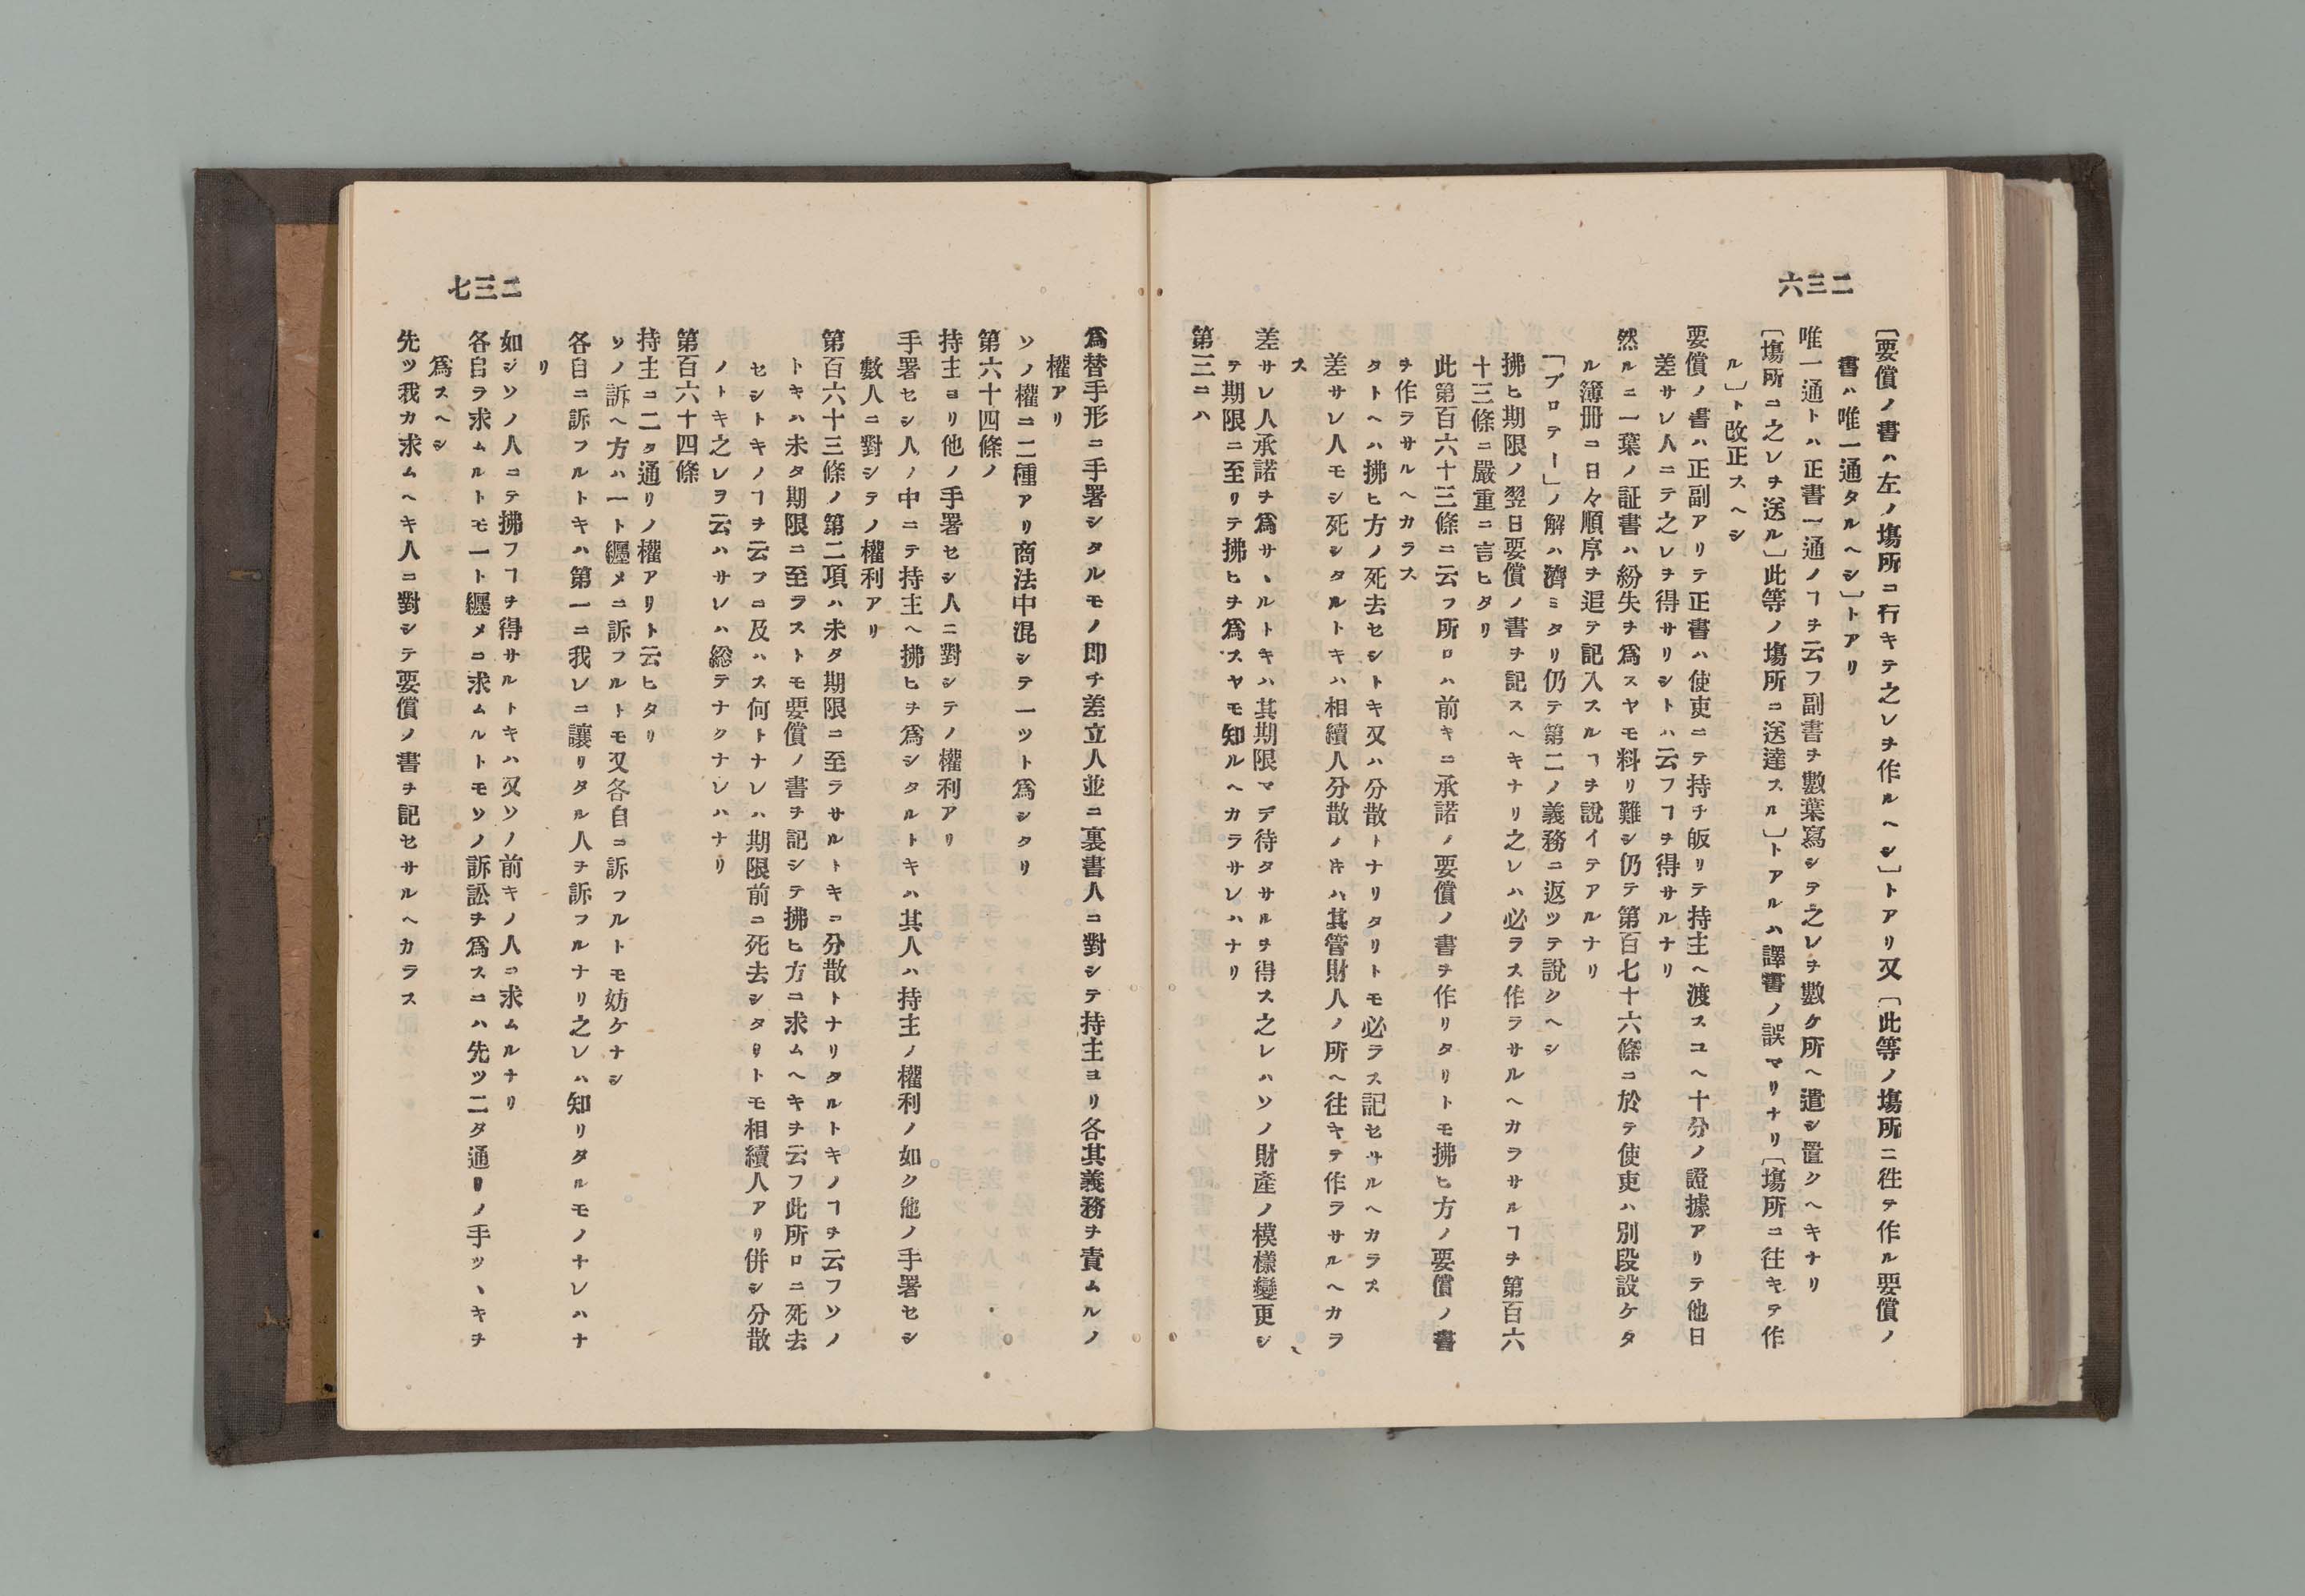 二三六
〔要償ノ書ハ左ノ塲所ニ行キテ之レヲ作ルヘシ〕トアリ又〔此等ノ塲所ニ徃テ作ル要償ノ
書ハ唯一通タルヘシ〕トアリ
唯一通トハ正書一通ノヿヲ云フ副書ヲ數葉寫シテ之レヲ數ケ所ヘ遣シ置クヘキナリ
〔塲所ニ之レヲ送ル〕此等ノ塲所ニ送達スル〕トアルハ譯書ノ誤マリナリ〔塲所ニ往キテ作
ル〕ト改正スヘシ
要償ノ書ハ正副アリテ正書ハ使吏ニテ持チ皈リテ持主ヘ渡スユヘ十分ノ證據アリテ他日
差サレ人ニテ之レヲ得サリシトハ云フヿヲ得サルナリ
然ルニ一葉ノ証書ハ紛失ヲ爲スヤモ料リ難シ仍テ第百七十六條ニ於テ使吏ハ別段設ケタ
ル簿册ニ日々順序ヲ追テ記入スルヿヲ說イテアルナリ
「プロテー」ノ解ハ濟ミタリ仍テ第二ノ義務ニ返ツテ說クヘシ
拂ヒ期限ノ翌日要償ノ書ヲ記スヘキナリ之レハ必ラス作ラサルヘカラサルヿヲ第百六
十三條ニ嚴重ニ言ヒタリ
此第百六十三條ニ云フ所ロハ前キニ承諾ノ要償ノ書ヲ作リタリトモ拂ヒ方ノ要償ノ書
ヲ作ラサルヘカラス
タトヘハ拂ヒ方ノ死去セシトキ又ハ分散トナリタリトモ必ラス記セサルヘカラス
差サレ人モシ死シタルトキハ相續人分散ノキハ其管財人ノ所ヘ往キテ作ラサルヘカラ
ス
差サレ人承諾ヲ爲サヽルトキハ其期限マデ待タサルヲ得ス之レハソノ財產ノ模樣變更シ
テ期限ニ至リテ拂ヒヲ爲スヤモ知ルヘカラサレハナリ
第三ニハ
二三七
爲替手形ニ手署シタルモノ即チ差立人並ニ裏書人ニ對シテ持主ヨリ各其義務ヲ責ムルノ
權アリ
ソノ權ニ二種アリ商法中混シテ一ツト爲シタリ
第六十四條ノ
持主ヨリ他ノ手署セシ人ニ對シテノ權利アリ
手署セシ人ノ中ニテ持主ヘ拂ヒヲ爲シタルトキハ其人ハ持主ノ權利ノ如ク他ノ手署セシ
數人ニ對シテノ權利アリ
第百六十三條ノ第二項ハ未タ期限ニ至ラサルトキニ分散トナリタルトキノヿヲ云フソノ
トキハ未タ期限ニ至ラストモ要償ノ書ヲ記シテ拂ヒ方ニ求ムヘキヲ云フ此所ロニ死去
セシトキノヿヲ云フニ及ハス何トナレハ期限前ニ死去シタリトモ相續人アリ併シ分散
ノトキ之レヲ云ハサレハ総テナクナレハナリ
第百六十四條
持主ニ二タ通リノ權アリト云ヒタリ
ソノ訴ヘ方ハ一ト纒メニ訴フルトモ又各自ニ訴フルトモ妨ケナシ
各自ニ訴フルトキハ第一ニ我レニ讓リタル人ヲ訴フルナリ之レハ知リタルモノナレハナ
リ
如シソノ人ニテ拂フヿヲ得サルトキハ又ソノ前キノ人ニ求ムルナリ
各自ラ求ムルトモ一ト纒メニ求ムルトモソノ訴訟ヲ爲スニハ先ツ二タ通リノ手ツヽキヲ
爲スヘシ
先ツ我カ求ムヘキ人ニ對シテ要償ノ書ヲ記セサルヘカラス